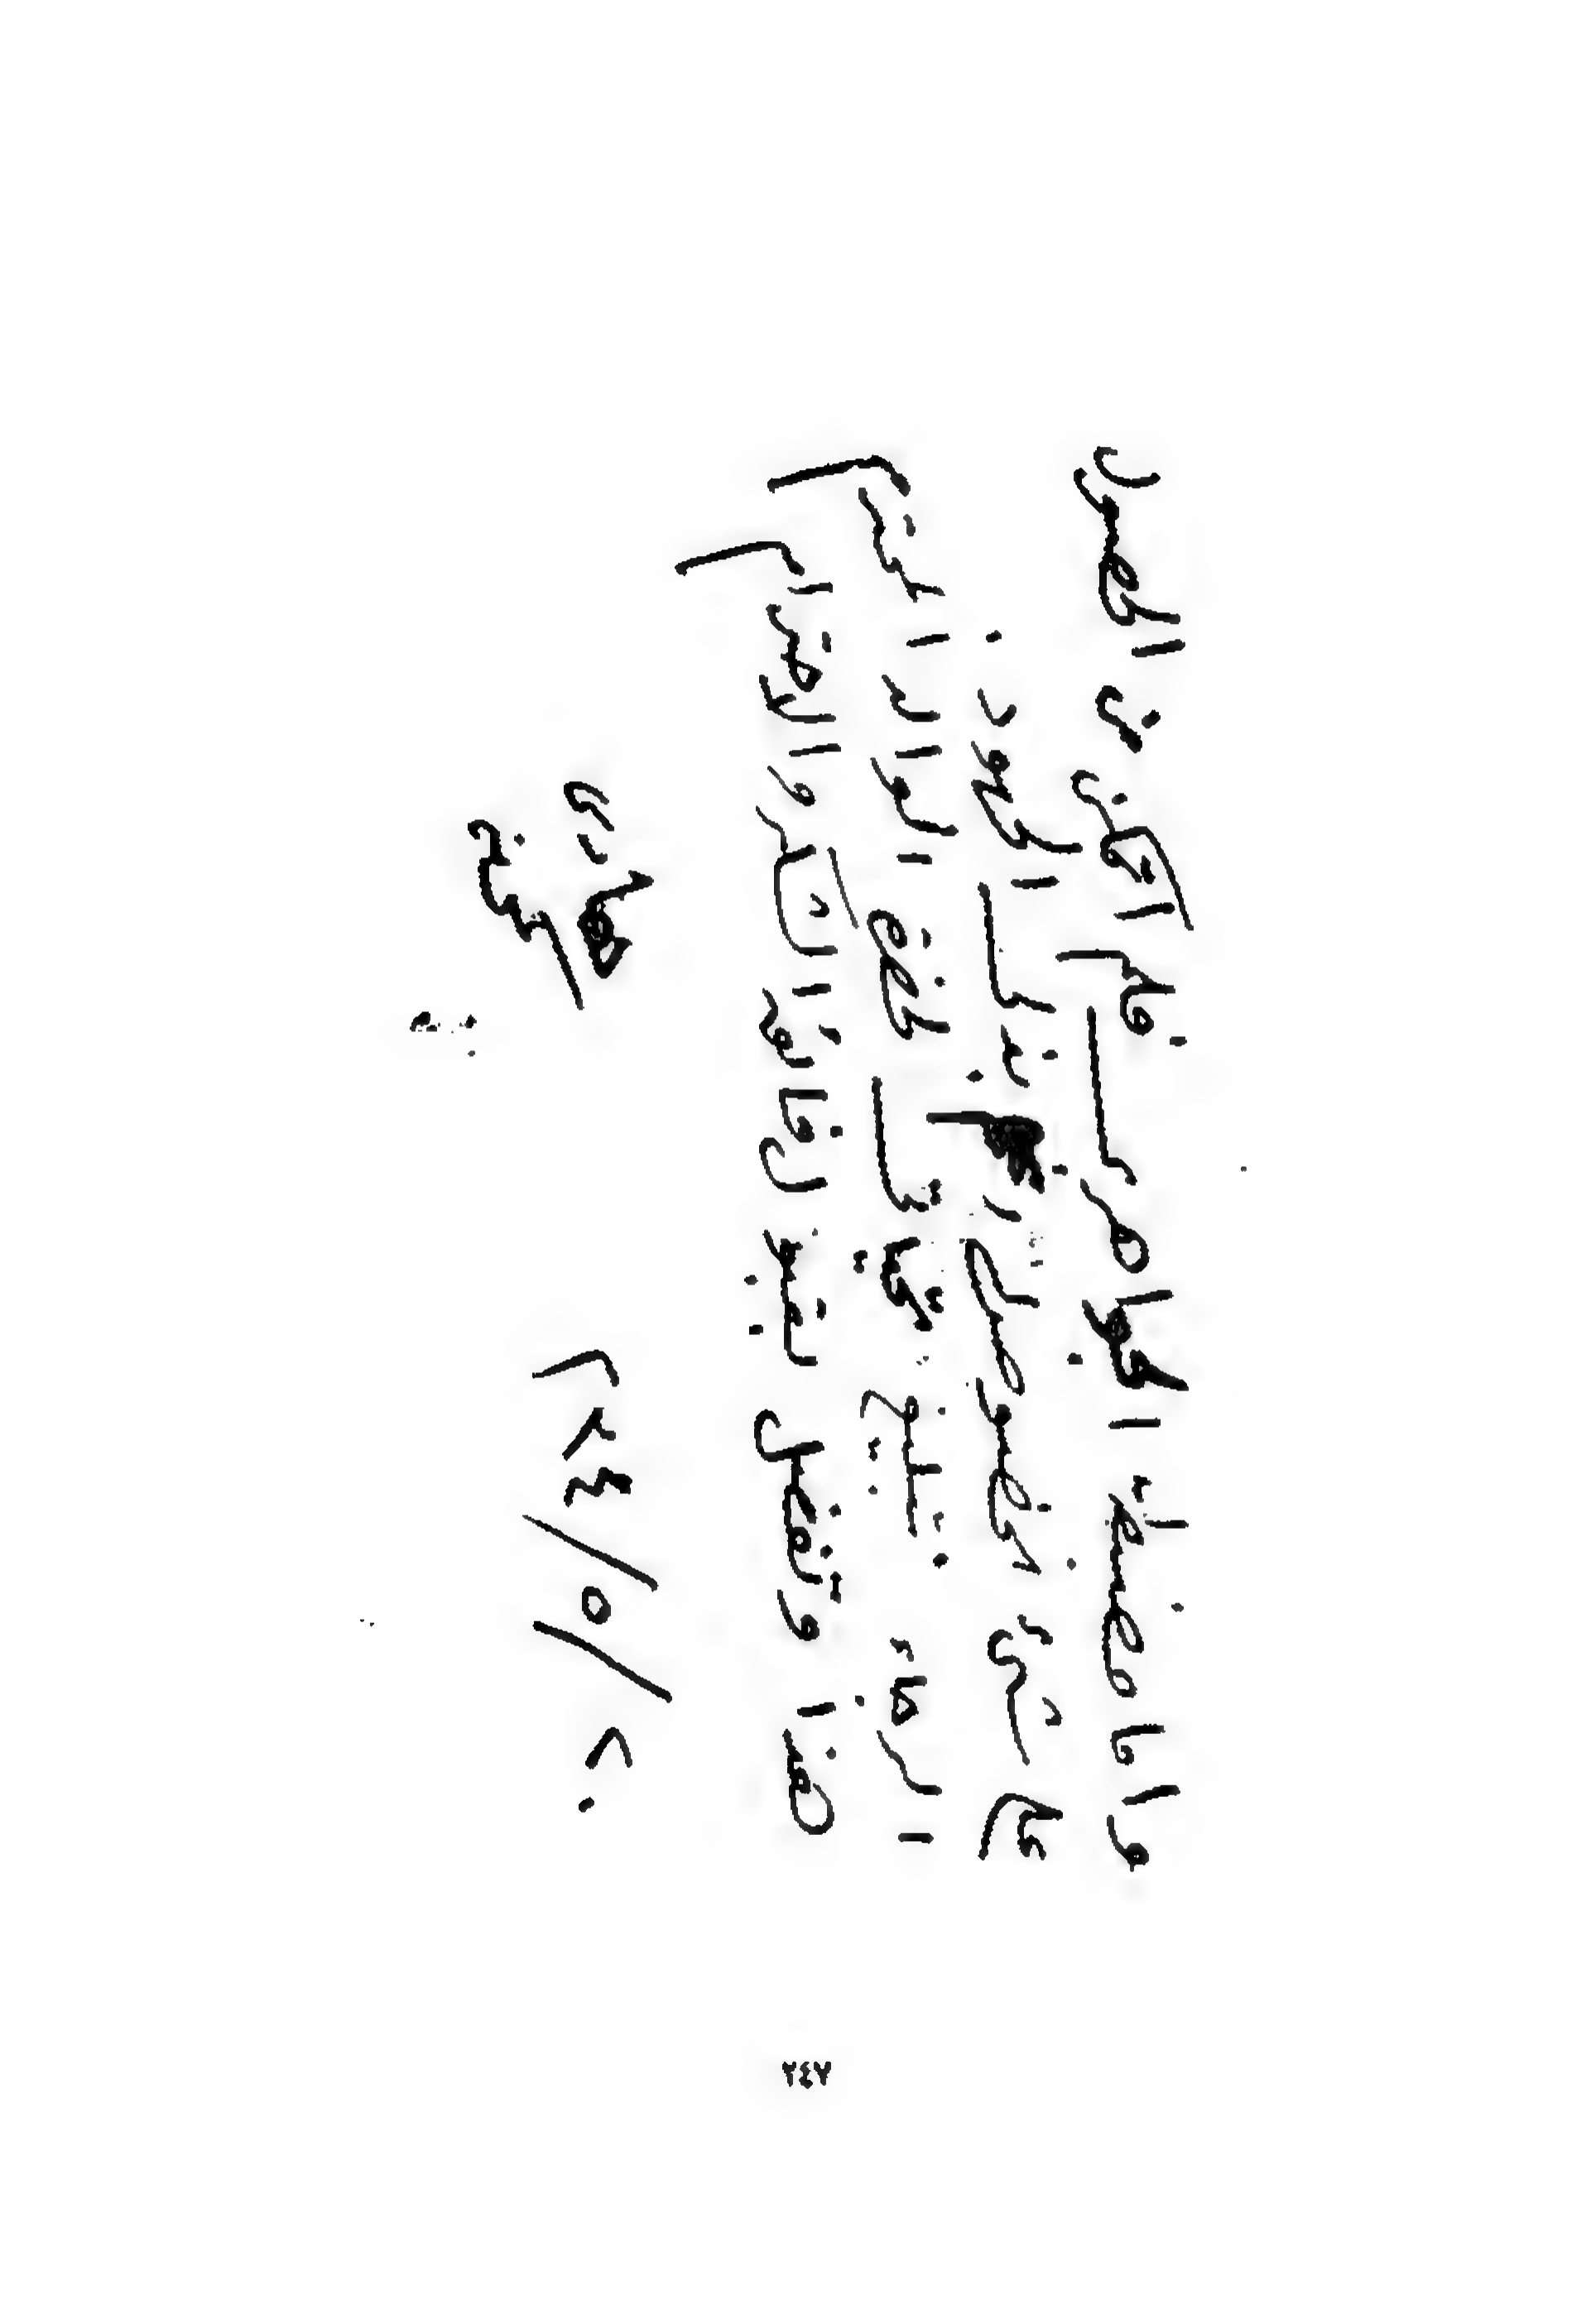 واما مخطوطة الجواهر فلم اتمكن من الحصول
على شيء بخصوصها رغم بذل الجهود.
الرجاء تبليغ تحياتي لحضرة الوالد المحترم
هذا وتفضل بقبول فائق الشكر والاحترام
٢٠/٥/٢٤م
٢٤٧